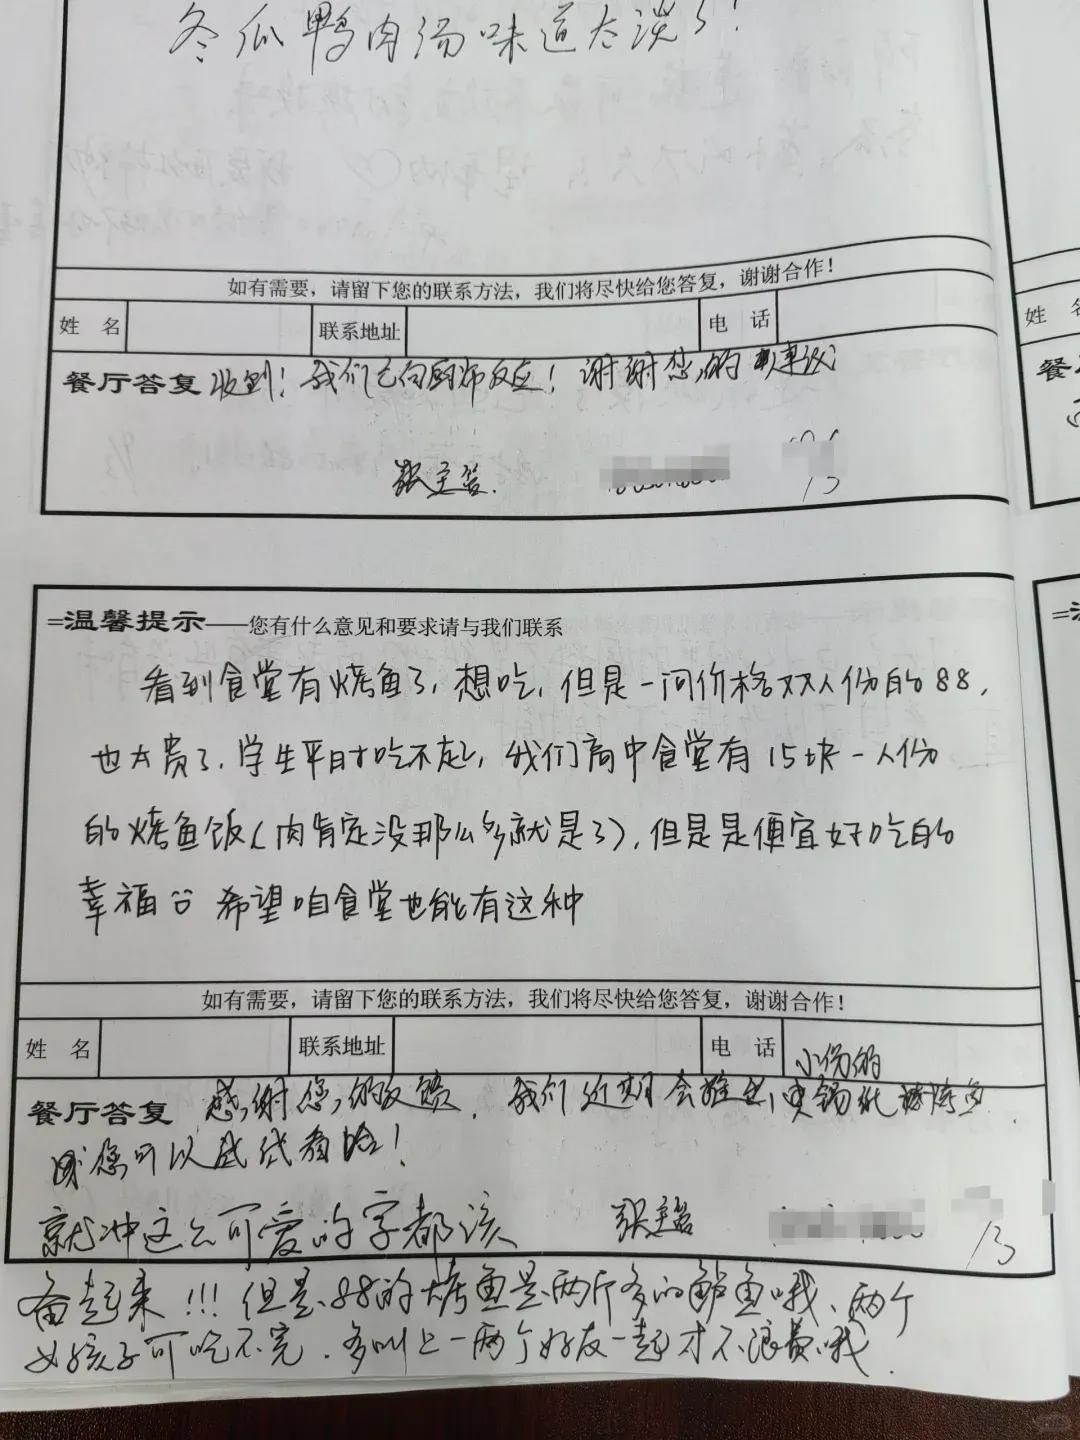 冬瓜鸭肉汤味道太淡了!
如有需要，请留下您的联系方法，我们将尽快给您答复，谢谢合作!
姓 名
联系地址
电 话
餐厅答复 收到! 我们已向厨师反应! 谢谢您的
张主管.
=温馨提示——您有什么意见和要求请与我们联系
看到食堂有烤鱼了，想吃，但是一问价格双人份的88，
也太贵了，学生平时吃不起，我们高中食堂有15块一人份
的烤鱼饭(肉肯定没那么多就是了)，但是是便宜好吃的
幸福 希望咱食堂也能有这种
如有需要，请留下您的联系方法，我们将尽快给您答复，谢谢合作!
姓 名
联系地址
电 话
小份的
餐厅答复 感谢您的反馈，我们近期会推出
您可以试试看哈!
张主管
就冲这么可爱的字都该
备起来!!! 但是88的烤鱼是两斤多的鲈鱼哦、两个
女孩子可吃不完. 多叫上一两个好友一起才不浪费哦.